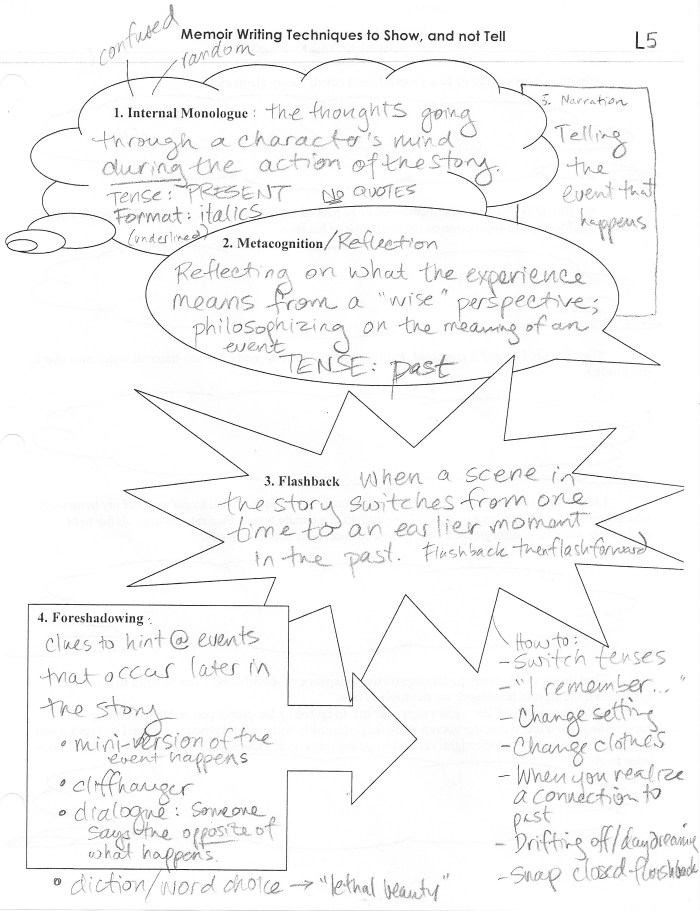 Memoir Writing Techniques to Show, and not Tell
L5
confused
random
1. Internal Monologue: the thoughts going
through a character's mind
during the action of the story.
Tense: PRESENT NO QUOTES
Format: italics
(underlined)
5. Narration
Telling
the
event that
happens
2. Metacognition/Reflection
Reflecting on what the experience
means from a "wise" perspective;
philosophizing on the meaning of an
event
TENSE: past
3. Flashback When a scene in
the story switches from one
time to an earlier moment
in the past. Flashback then flash forward
4. Foreshadowing:
clues to hint @ events
that occur later in
the story
• mini-version of the
event happens
• cliffhanger
• dialogue: someone
says the opposite of
what happens.
• diction/word choice → "lethal beauty"
How to:
- Switch tenses
- "I remember..."
- Change setting
- Change clothes
- When you realize
a connection to
past
- Drifting off/daydreaming
- Snap closed flashback